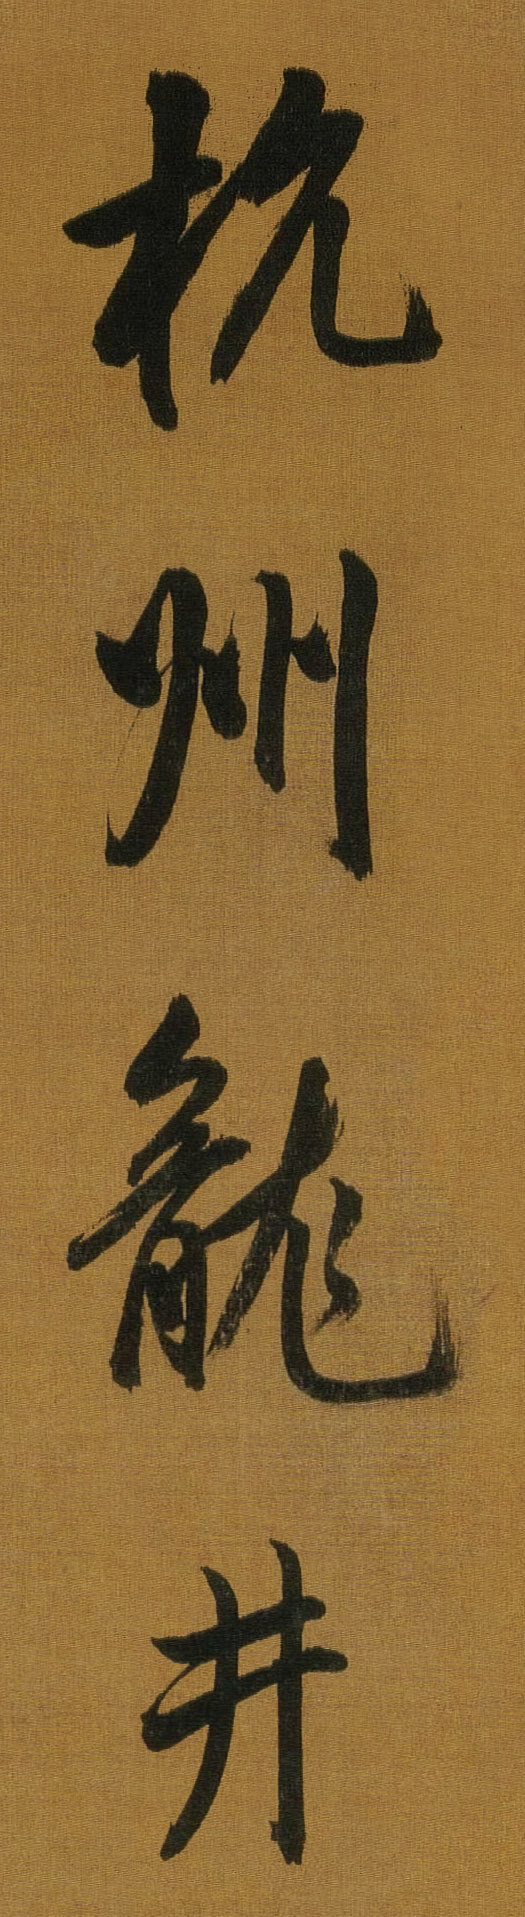 杭州龍井